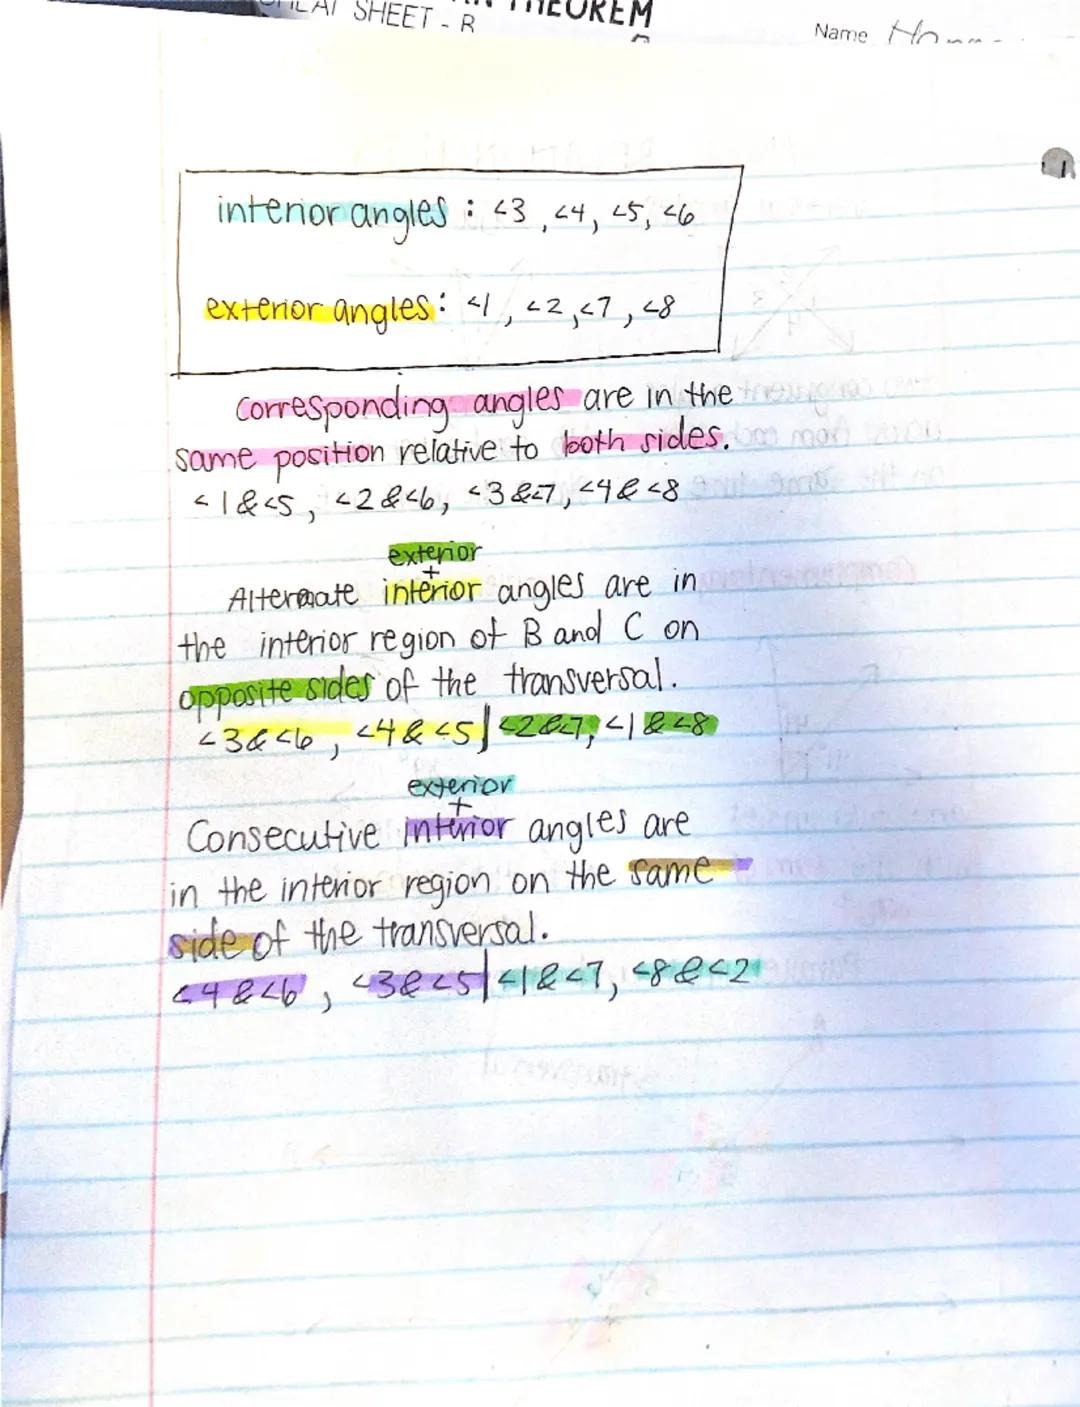 SHEET - R
THEOREM
Name
interior angles : <3, <4, <5, <6
exterior angles: <1, <2, <7, <8
Corresponding angles are in the
same position relative to both sides.
<1 & <5, <2 & <6, <3 & <7, <4 & <8
exterior
+
Alternate interior angles are in
the interior region of B and C on
opposite sides of the transversal.
<3 & <6, <4 & <5 | <2 & <7, <1 & <8
exterior
+
Consecutive interior angles are
in the interior region on the same
side of the transversal.
<4 & <6, <3 & <5 | <1 & <7, <8 & <2